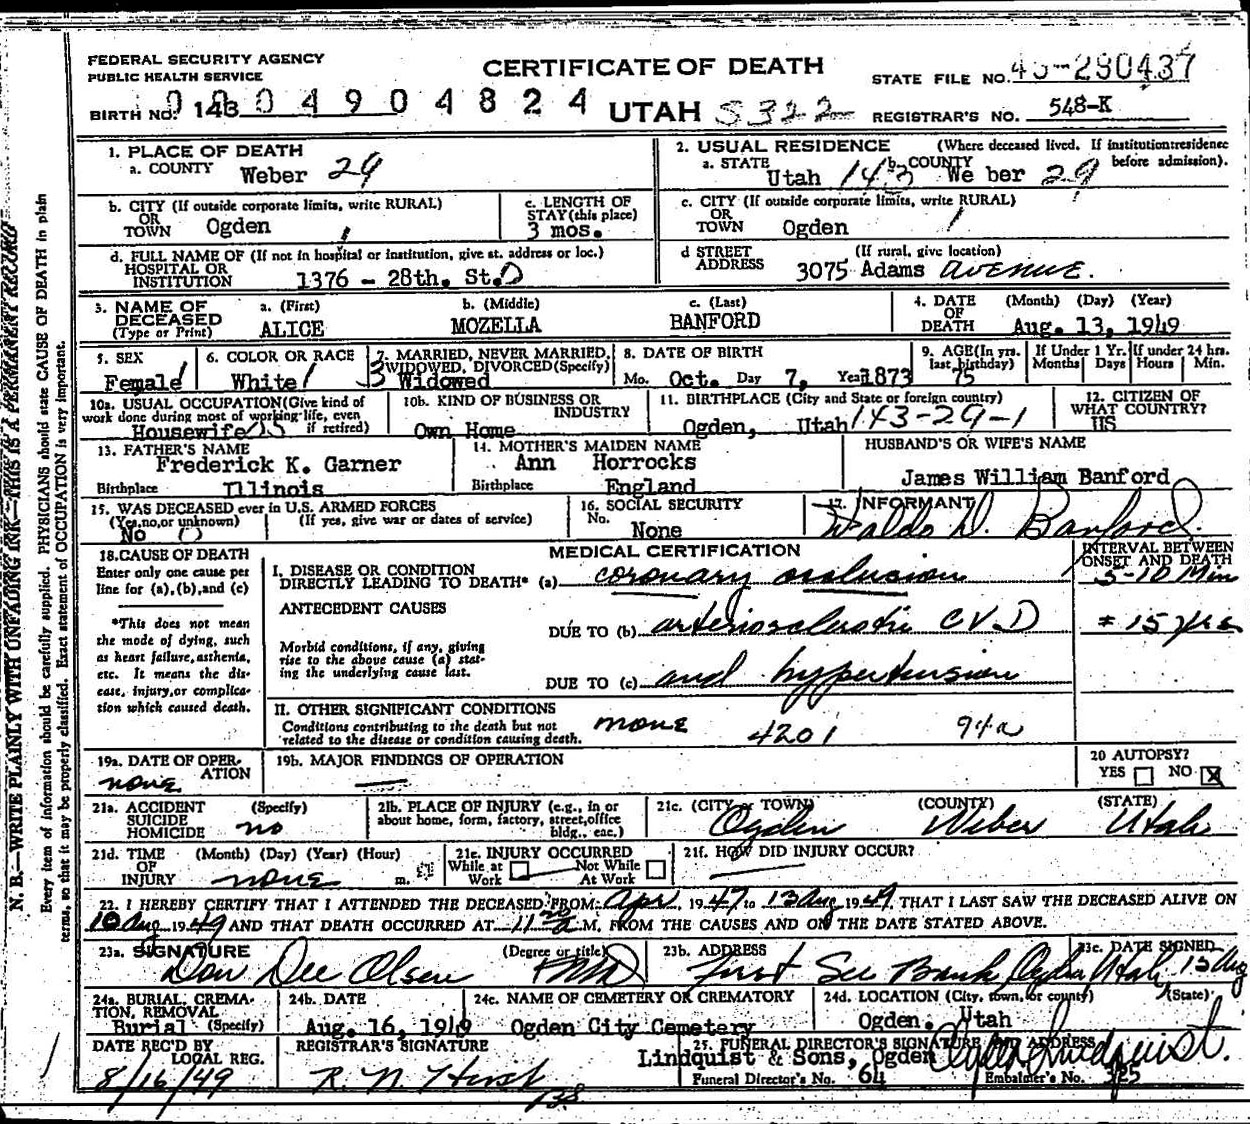 FEDERAL SECURITY AGENCY
PUBLIC HEALTH SERVICE
CERTIFICATE OF DEATH
STATE FILE NO. 49-290437
BIRTH NO. 143 0 4 9 0 4 8 2 4
UTAH S322
REGISTRAR'S NO. 548-K
1. PLACE OF DEATH
a. COUNTY Weber 29
2. USUAL RESIDENCE (Where deceased lived. If institution:residence before admission).
a. STATE Utah 143 b. COUNTY We ber 29
b. CITY (If outside corporate limits, write RURAL)
OR
TOWN Ogden 1
c. LENGTH OF
STAY (this place)
3 mos.
c. CITY (If outside corporate limits, write RURAL)
OR
TOWN Ogden 1
d. FULL NAME OF (If not in hospital or institution, give st. address or loc.)
HOSPITAL OR
INSTITUTION 1376 - 28th. St.
d STREET
ADDRESS (If rural, give location)
3075 Adams avenue.
3. NAME OF
DECEASED
(Type or Print)
a. (First) ALICE
b. (Middle) MOZELLA
c. (Last) BANFORD
4. DATE
OF
DEATH
(Month) (Day) (Year)
Aug. 13, 1949
5. SEX
Female 1
6. COLOR OR RACE
White 1
7. MARRIED, NEVER MARRIED,
WIDOWED, DIVORCED (Specify)
3 Widowed
8. DATE OF BIRTH
Mo. Oct. Day 7, Year 1873
9. AGE (In yrs.
last birthday)
75
If Under 1 Yr.
Months Days
If under 24 hrs.
Hours Min.
10a. USUAL OCCUPATION (Give kind of
work done during most of working life, even
if retired)
Housewife
10b. KIND OF BUSINESS OR
INDUSTRY
Own Home
11. BIRTHPLACE (City and State or foreign country)
Ogden, Utah 143-29-1
12. CITIZEN OF
WHAT COUNTRY?
US
13. FATHER'S NAME
Frederick K. Garner
Birthplace Illinois
14. MOTHER'S MAIDEN NAME
Ann Horrocks
Birthplace England
HUSBAND'S OR WIFE'S NAME
James William Banford
15. WAS DECEASED ever in U.S. ARMED FORCES
(Yes,no,or unknown) (If yes, give war or dates of service)
No 0
16. SOCIAL SECURITY
No.
None
17. INFORMANT
Waldo D. Banford
18. CAUSE OF DEATH
Enter only one cause per
line for (a),(b),and (c)
*This does not mean
the mode of dying, such
as heart failure, asthenia,
etc. It means the dis-
ease, injury, or complica-
tion which caused death.
MEDICAL CERTIFICATION
INTERVAL BETWEEN
ONSET AND DEATH
I. DISEASE OR CONDITION
DIRECTLY LEADING TO DEATH* (a) coronary occlusion 5-10 Min
ANTECEDENT CAUSES
DUE TO (b) arteriosclerotic CVD 15 yrs
Morbid conditions, if any, giving
rise to the above cause (a) stat-
ing the underlying cause last.
DUE TO (c) and hypertension
II. OTHER SIGNIFICANT CONDITIONS
Conditions contributing to the death but not
related to the disease or condition causing death.
none 4201 94a
19a. DATE OF OPER-
ATION
none
19b. MAJOR FINDINGS OF OPERATION
20 AUTOPSY?
YES NO X
21a. ACCIDENT
SUICIDE
HOMICIDE
(Specify)
no
21b. PLACE OF INJURY (e.g., in or
about home, form, factory, street, office
bldg., eac.)
21c. (CITY or TOWN) (COUNTY) (STATE)
Ogden Weber Utah
21d. TIME
OF
INJURY
(Month) (Day) (Year) (Hour)
none m.
21e. INJURY OCCURRED
While at
Work
Not While
At Work
21f. HOW DID INJURY OCCUR?
22. I HEREBY CERTIFY THAT I ATTENDED THE DECEASED FROM Apr, 1947 to 13 Aug 1949, THAT I LAST SAW THE DECEASED ALIVE ON
10 Aug 1949 AND THAT DEATH OCCURRED AT 11 00 a M, FROM THE CAUSES AND ON THE DATE STATED ABOVE.
23a. SIGNATURE
Don Dee Olsen
(Degree or title)
MD
23b. ADDRESS
First Sec Bank, Ogden Utah
23c. DATE SIGNED
15 Aug
24a. BURIAL, CREMA-
TION, REMOVAL
Burial (Specify)
24b. DATE
Aug. 16, 1949
24c. NAME OF CEMETERY OR CREMATORY
Ogden City Cemetery
24d. LOCATION (City, town, or county) (State)
Ogden. Utah
DATE REC'D BY
LOCAL REG.
8/16/49
REGISTRAR'S SIGNATURE
R. N. Hirst
25. FUNERAL DIRECTOR'S SIGNATURE AND ADDRESS
Lindquist & Sons, Ogden
Funeral Director's No. 64
Embalmer's No. 325
N. B.—WRITE PLAINLY WITH UNFADING INK—THIS IS A PERMANENT RECORD
Every item of information should be carefully supplied. PHYSICIANS should state CAUSE OF DEATH in plain
terms, so that it may be properly classified. Exact statement of OCCUPATION is very important.